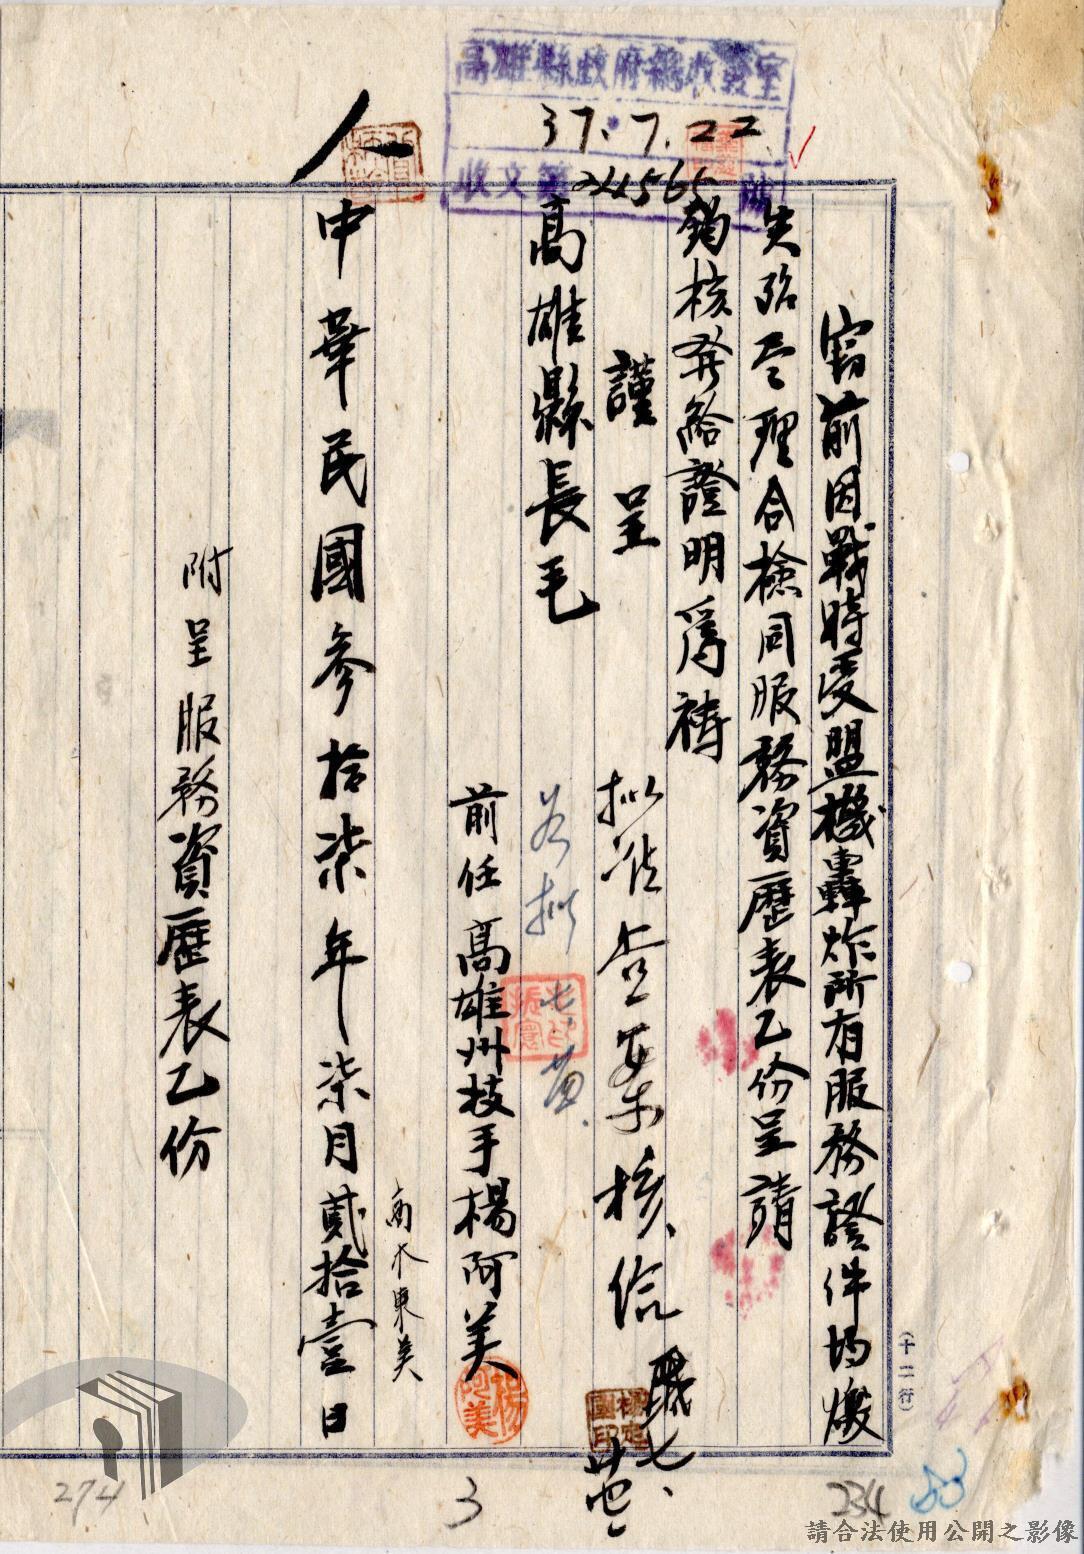 高雄縣政府總收發室
37.7.22
收文第24565號
人
竊前因戰時受盟機轟炸所有服務證件均燬
失殆盡理合檢同服務資歷表乙份呈請
鈞核發給證明為禱
謹呈
高雄縣長毛
擬准查案核給
職
七、
若擬
前任高雄州技手楊阿美
楊阿美
高木東美
中華民國參拾柒年柒月貳拾壹日
附呈服務資歷表乙份
(十二行)
274
3
234
請合法使用公開之影像